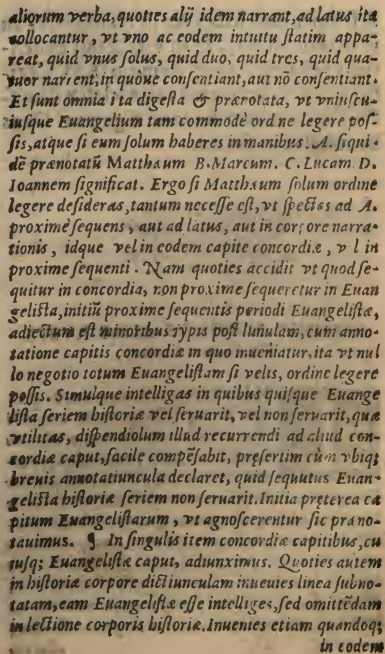 aliorum verba, quoties alij idem narrant, ad latus ita
collocantur, vt vno ac eodem intuitu statim appa-
reat, quid vnus solus, quid duo, quid tres, quid qua-
tuor narrent, in quòue consentiant, aut nō consentiant.
Et sunt omnia ita digesta & prænotata, vt vniuscu-
iusque Euangelium tam commodè ordine legere pos-
sis, atque si eum solum haberes in manibus. A. siqui-
dē prænotatũ Matthæum B. Marcum. C. Lucam D.
Ioannem significat. Ergo si Matthæum solum ordine
legere desideras, tantum necesse est, vt spectes ad A.
proximè sequens, aut ad latus, aut in corpore narra-
tionis, idque vel in eodem capite concordiæ, vel in
proxime sequenti. Nam quoties accidit vt quod se-
quitur in concordia, non proxime sequeretur in Euan
gelista, initiũ proxime sequentis periodi Euangelistæ,
adiectum est minoribus typis post lunulam, cum anno-
tatione capitis concordiæ in quo inueniatur, ita vt nul
lo negotio totum Euangelistam si velis, ordine legere
possis. Simulque intelligas in quibus quisque Euange
lista seriem historiæ vel seruarit, vel non seruarit, quæ
vtilitas, dispendiolum illud recurrendi ad aliud con-
cordiæ caput, facile compēsabit, præsertim cùm vbiq;
breuis annotatiuncula declaret, quid sequutus Euan-
gelista historiæ seriem non seruarit. Initia præterea ca
pitum Euangelistarum, vt agnoscerentur sic præno-
tauimus. ¶ In singulis item concordiæ capitibus, cu
iusq; Euangelistæ caput, adiunximus. Quoties autem
in historiæ corpore dictiunculam inueuies linea subno-
tatam, eam Euangelistæ esse intelliges, sed omittēdam
in lectione corporis historiæ. Inuenies etiam quandoq;
in eodem